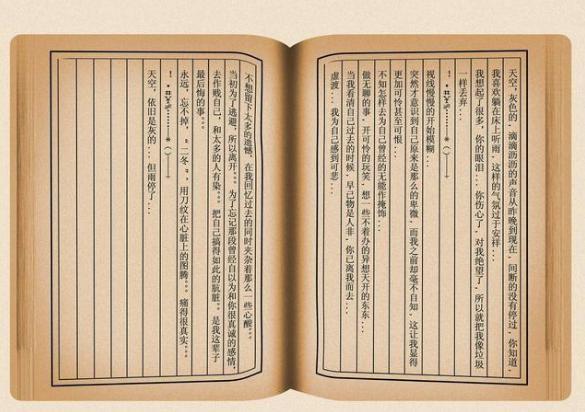 天空，灰色的，滴滴沥沥的声音从昨晚到现在，间断的没有停过，你知道，
我喜欢躺在床上听雨，这样的气氛过于安祥...
我想起了很多，你的眼泪...你伤心了，对我绝望了，所以就把我像垃圾
一样丢弃...
视线慢慢的开始模糊...
突然才意识到自己原来是那么的卑微，而我之前却毫不自知，这让我显得
更加可怜甚至可恨..
不知怎样去为自己曾经的无能作掩饰...
做无聊的事，开可怜的玩笑，想一些不着办的异想天开的东东...
当我看清自己过去的时候，早已物是人非，你已离我而去...
虚渡...我为自己感到可悲...
不想留下太多的遗憾，在我回忆过去的同时夹杂着那么一些心酸°°°
当初为了逃避，所以离开°°°为了忘记那段曾经自以为和你很真诚的感情，
去作贱自己，和太多的人有染°°°把自己搞得如此的肮脏°°°是我这辈子
最后悔的事°°°
永远，忘不掉，"二冬"，用刀纹在心脏上的图腾°°°痛得很真实°°°
天空，依旧是灰的...但雨停了...